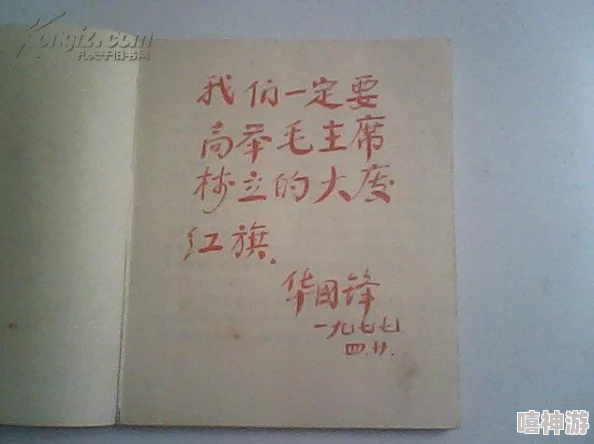 Kongfz.com
孔夫子旧书网
我们一定要
高举毛主席
树立的大庆
红旗.
华国锋
一九七七
四.廿.
嘻神游